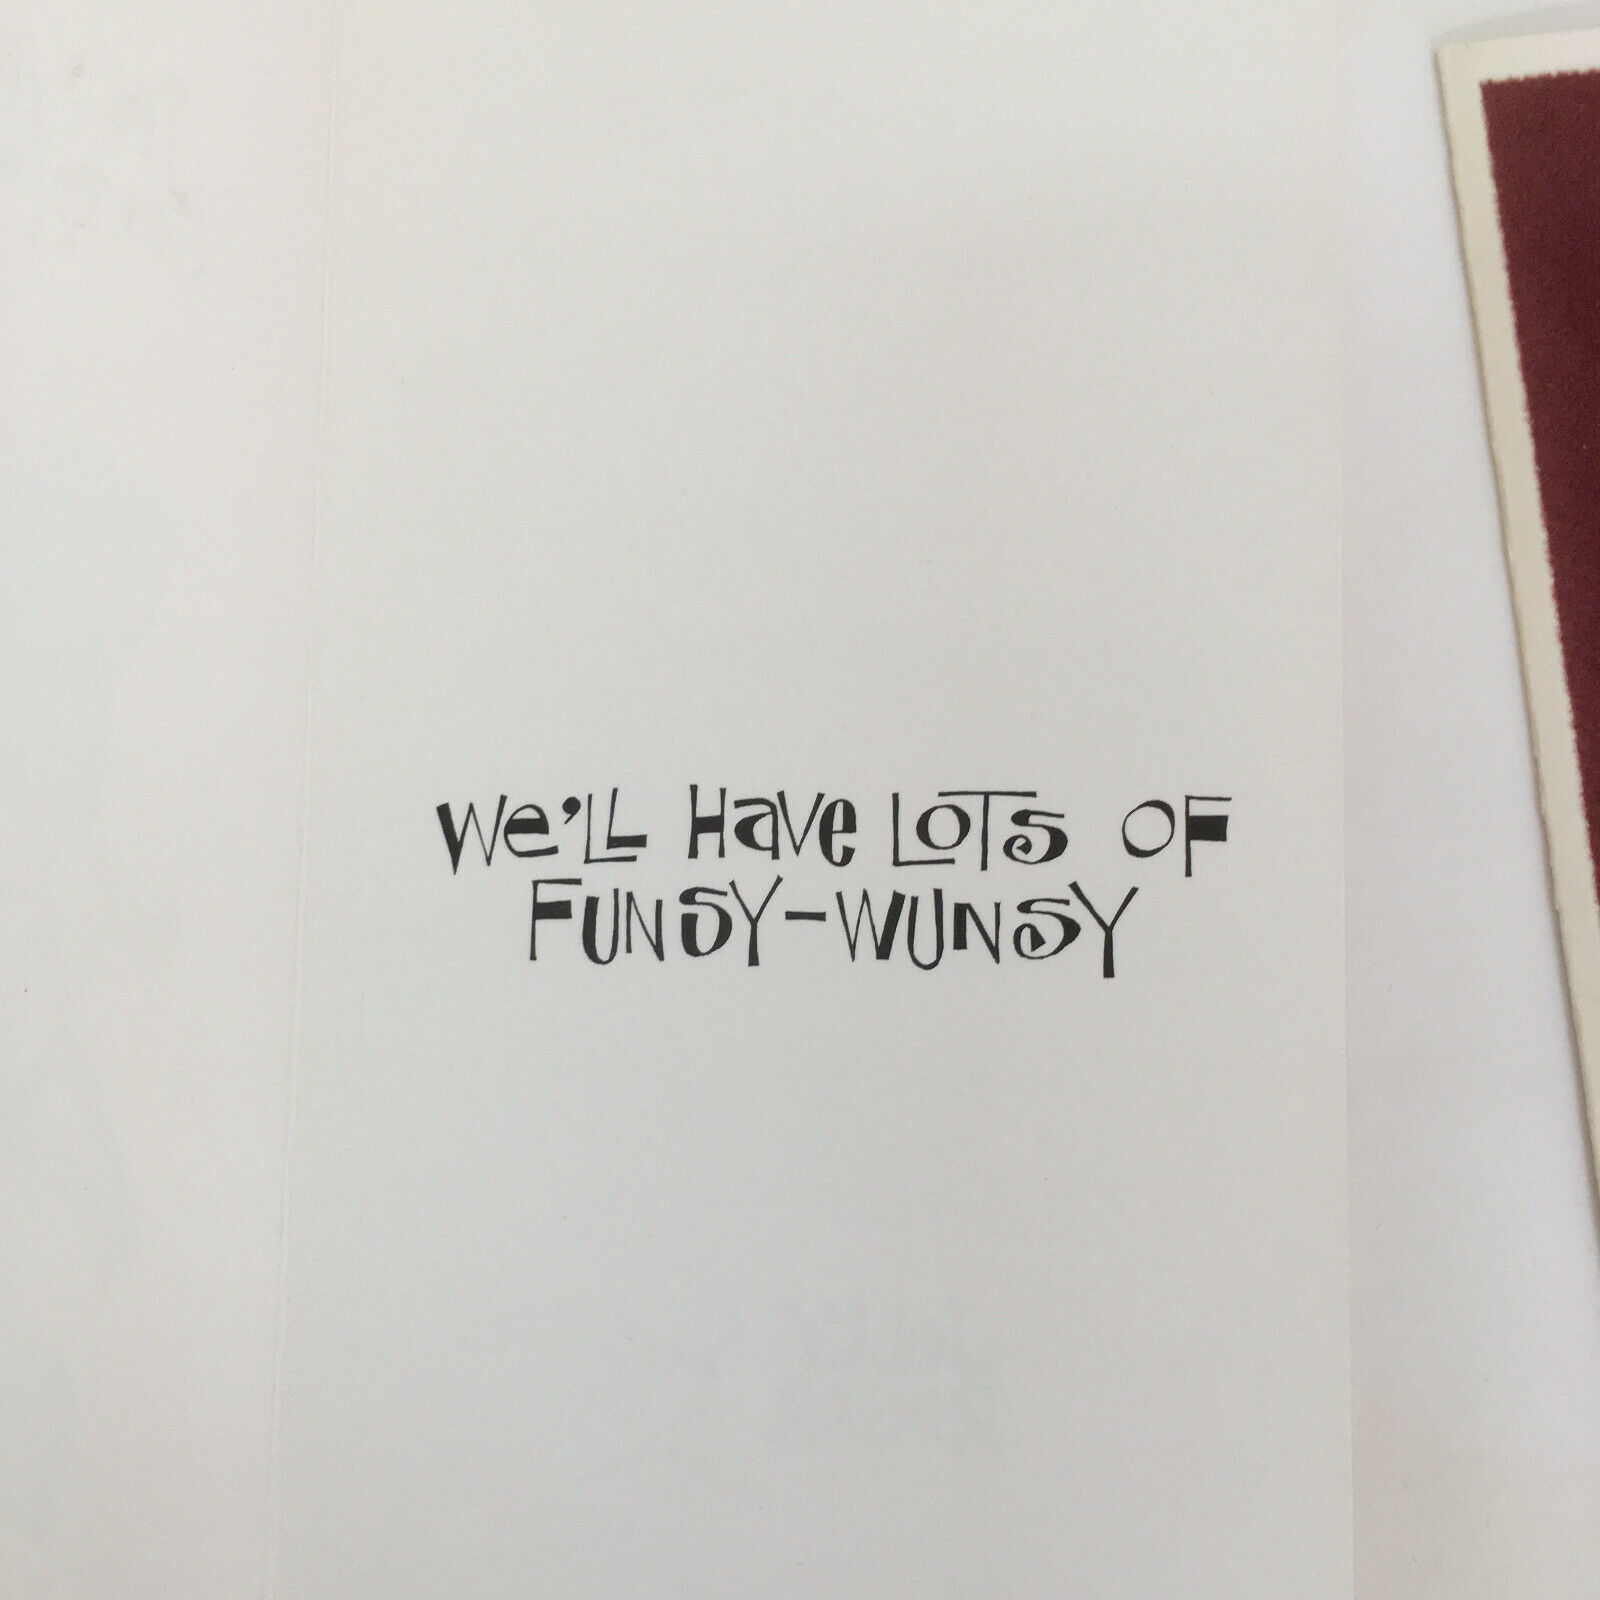 We'LL Have LOTS OF
FUNSY-WUNSY